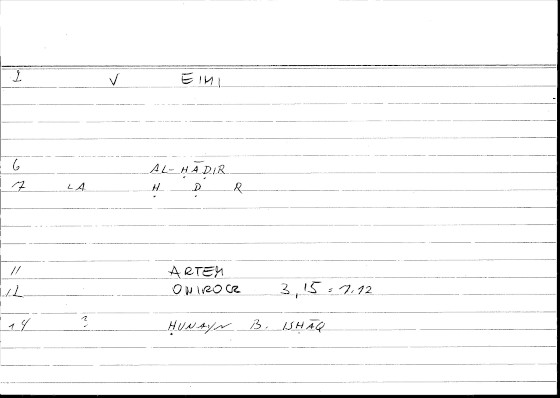 1 V EINI
6 AL-ḤĀḌIR
7 LA Ḥ Ḍ R
11 ARTEM
12 ONIROCR 3,15 = 1.12
14 ? ḤUNAYN B. ISḤĀQ